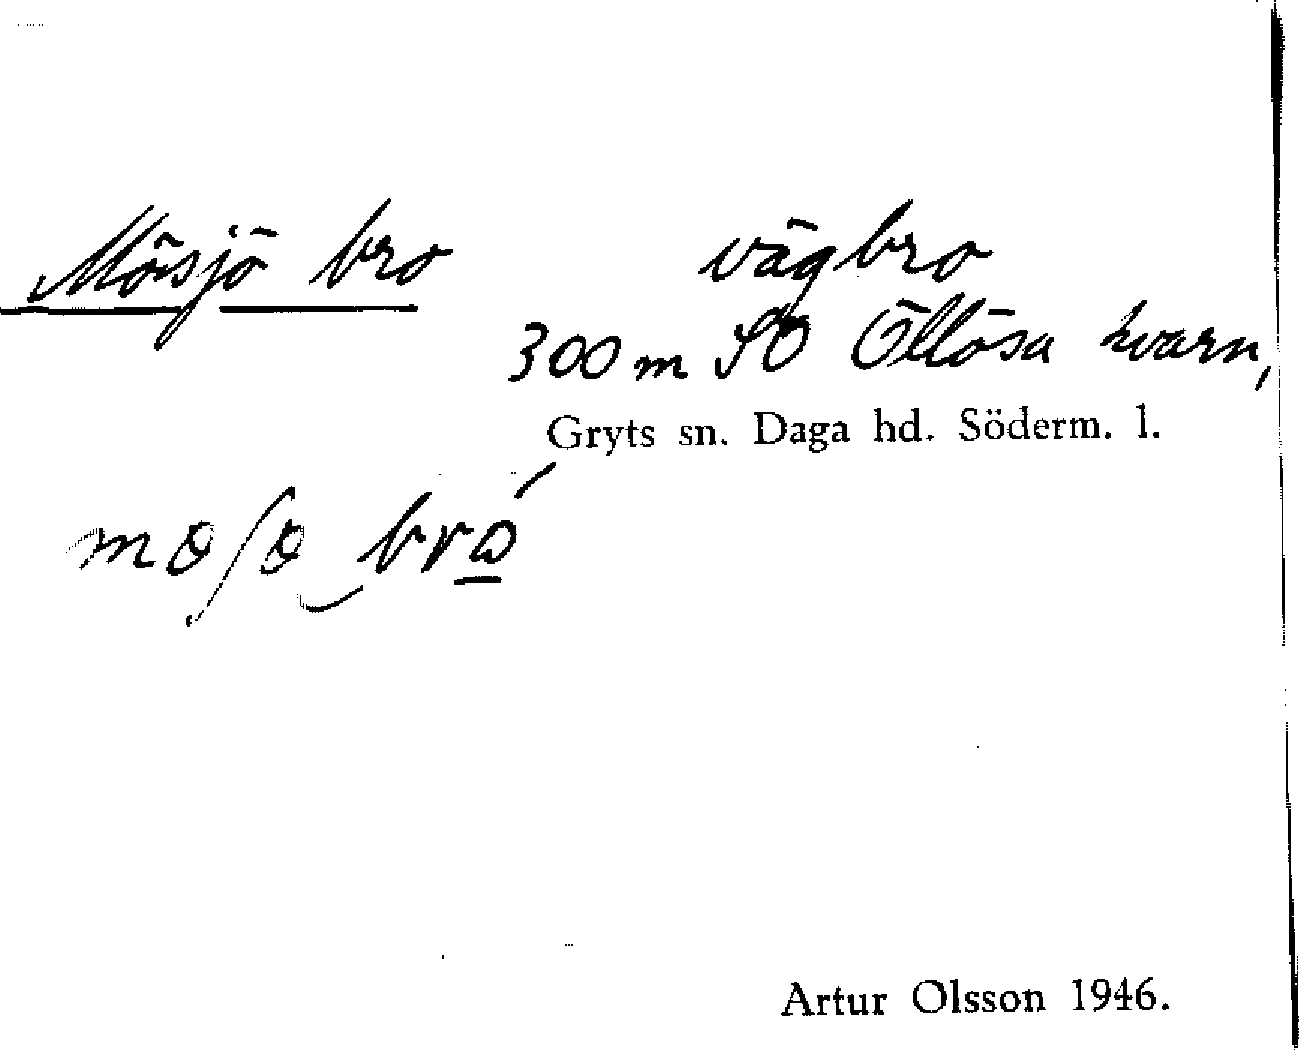 Mösjö bro vägbro
300 m SO Öllösa kvarn,
Gryts sn. Daga hd. Söderm. l.
bro
Artur Olsson 1946.